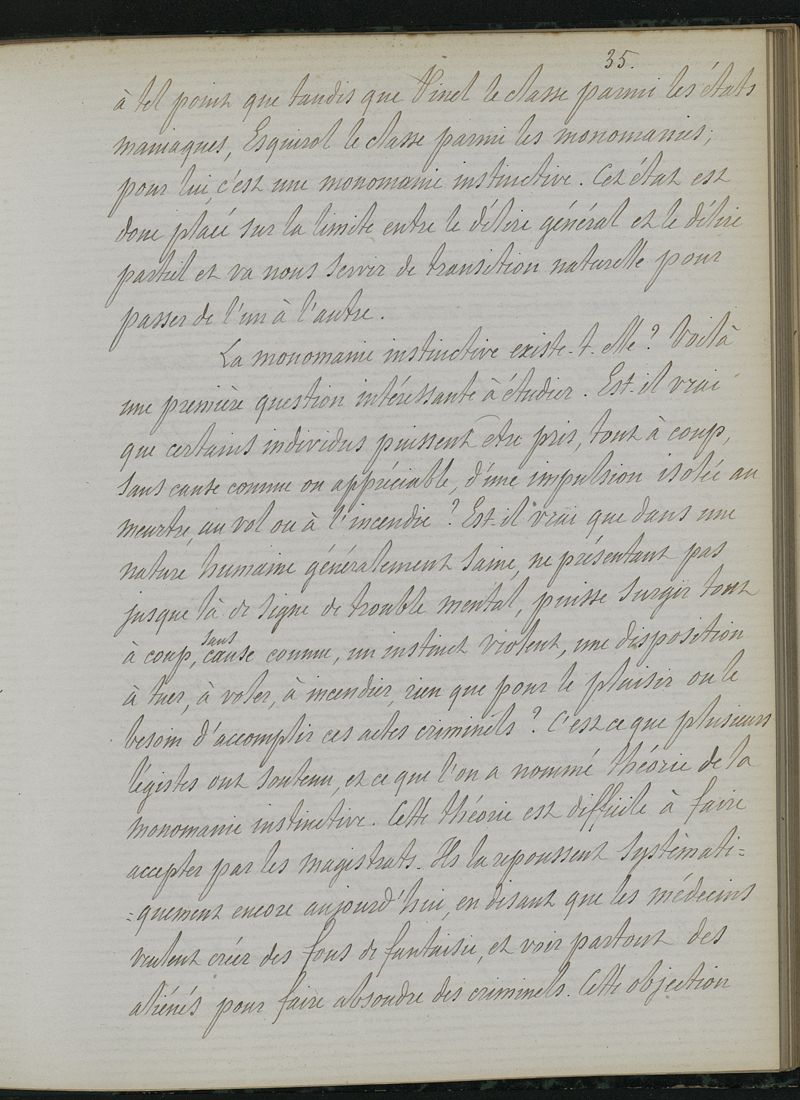 35.
à tel point que tandis que Pinel le classe parmi les états
maniaques, Esquirol le classe parmi les monomanies;
pour lui, c'est une monomanie instinctive. Cet état est
donc placé sur la limite entre le délire général et le délire
partiel et va nous servir de transition naturelle pour
passer de l'un à l'autre.
La monomanie instinctive existe-t-elle? Voilà
une première question intéressante à étudier. Est-il vrai
que certains individus puissent être pris, tout à coup,
sans cause connue ou appréciable, d'une impulsion isolée au
meurtre, au vol ou à l'incendie? Est-il vrai que dans une
nature humaine généralement saine, ne présentant pas
jusque là de signe de trouble mental, puisse surgir tout
à coup, sans cause connue, un instinct violent, une disposition
à tuer, à voler, à incendier, rien que pour le plaisir ou le
besoin d'accomplir ces actes criminels? C'est ce que plusieurs
légistes ont soutenu, et ce que l'on a nommé théorie de la
monomanie instinctive. Cette théorie est difficile à faire
accepter par les magistrats. Ils la repoussent systémati=
=quement encore aujourd'hui, en disant que les médecins
veulent créer des fous de fantaisie, et voir partout des
aliénés pour faire absoudre des criminels. Cette objection